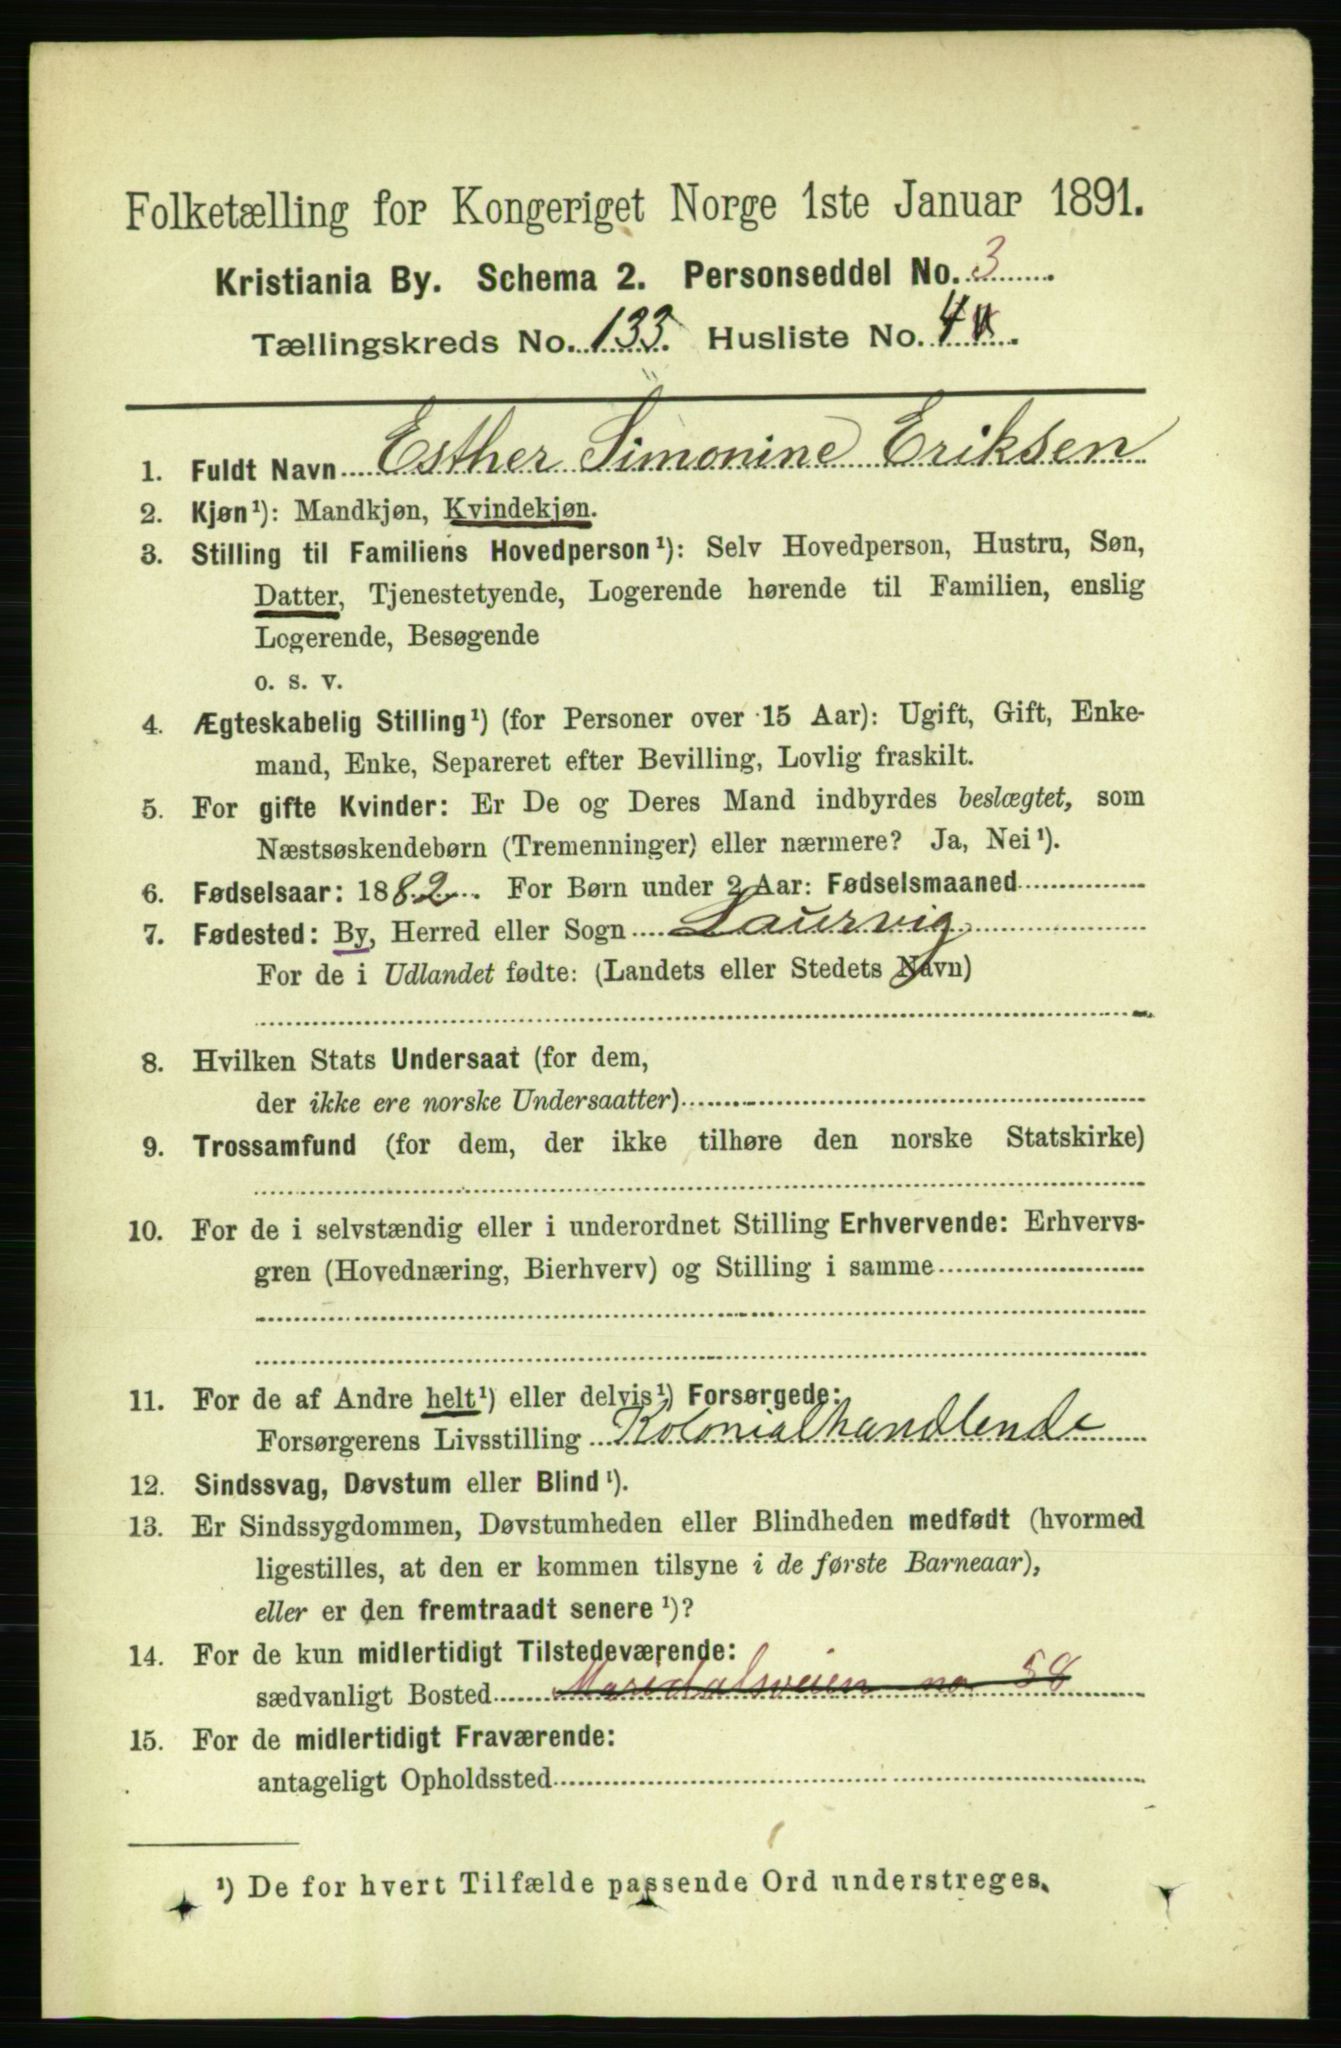 Folketælling for Kongeriget Norge 1ste Januar 1891.
Kristiania By. Schema 2. Personseddel No. 3
Tællingskreds No. 133. Husliste No. 4
1. Fuldt Navn Esther Simonine Eriksen
2. Kjøn¹): Mandkjøn, Kvindekjøn.
3. Stilling til Familiens Hovedperson¹): Selv Hovedperson, Hustru, Søn,
Datter, Tjenestetyende, Logerende hørende til Familien, enslig
Logerende, Besøgende
o. s. v.
4. Ægteskabelig Stilling¹) (for Personer over 15 Aar): Ugift, Gift, Enke-
mand, Enke, Separeret efter Bevilling, Lovlig fraskilt.
5. For gifte Kvinder: Er De og Deres Mand indbyrdes beslægtet, som
Næstsøskendebørn (Tremenninger) eller nærmere? Ja, Nei¹).
6. Fødselsaar: 1882. For Børn under 2 Aar: Fødselsmaaned
7. Fødested: By, Herred eller Sogn Laurvig
For de i Udlandet fødte: (Landets eller Stedets Navn)
8. Hvilken Stats Undersaat (for dem,
der ikke ere norske Undersaatter)
9. Trossamfund (for dem, der ikke tilhøre den norske Statskirke)
10. For de i selvstændig eller i underordnet Stilling Erhvervende: Erhvervs-
gren (Hovednæring, Bierhverv) og Stilling i samme
11. For de af Andre helt¹) eller delvis¹) Forsørgede:
Forsørgerens Livsstilling Kolonialhandlende
12. Sindssvag, Døvstum eller Blind¹).
13. Er Sindssygdommen, Døvstumheden eller Blindheden medfødt (hvormed
ligestilles, at den er kommen tilsyne i de første Barneaar),
eller er den fremtraadt senere¹)?
14. For de kun midlertidigt Tilstedeværende:
sædvanligt Bosted Maridalsveien no 58
15. For de midlertidigt Fraværende:
antageligt Opholdssted
¹) De for hvert Tilfælde passende Ord understreges.